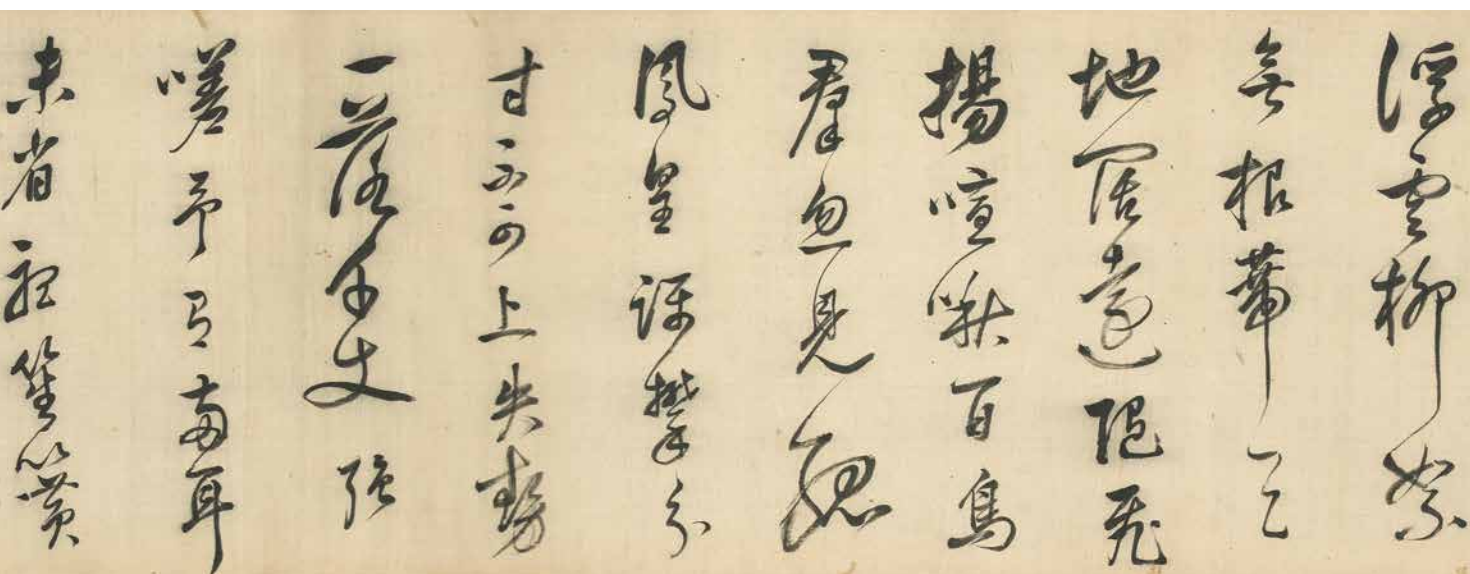 浮雲柳絮
無根蔕天
地闊遠隨飛
揚喧啾百鳥
羣忽見孤
鳳皇躋攀分
寸不可上失勢
一落千丈強
嗟予有兩耳
未省聽笙簧